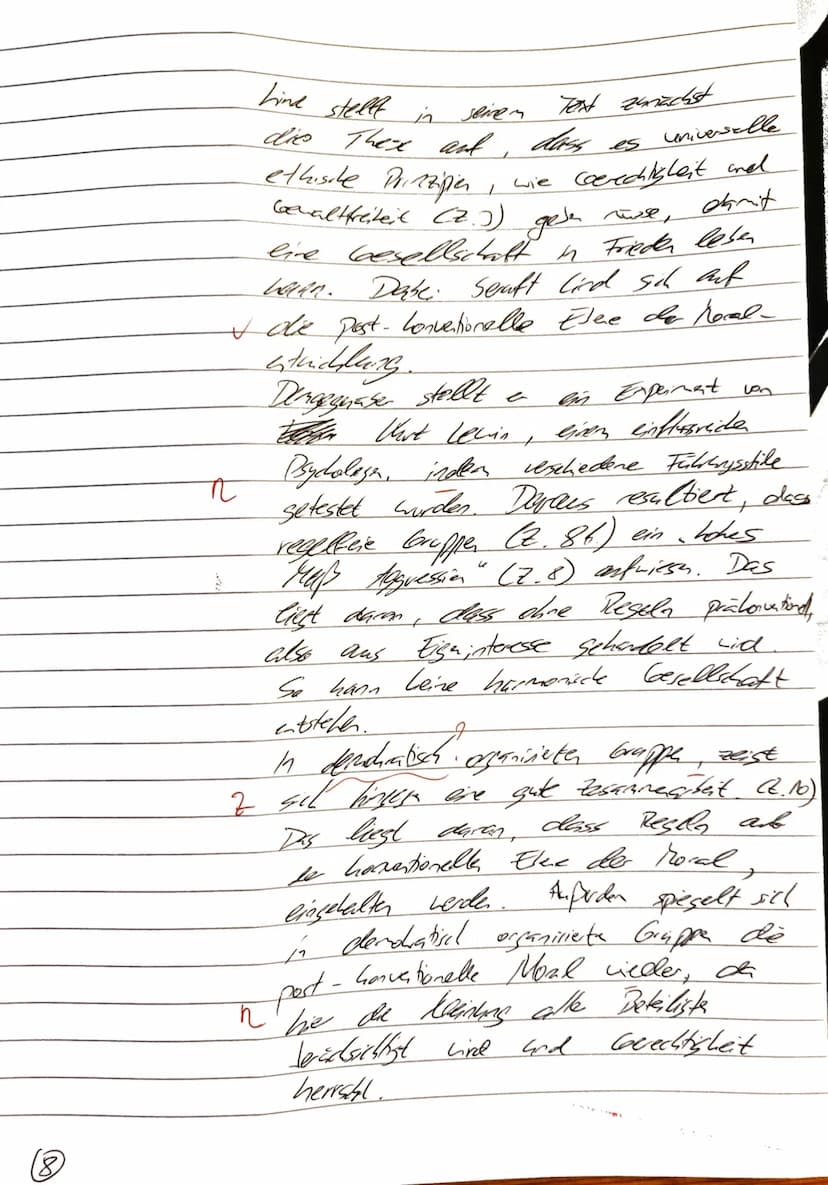 Lind stellt in seinem Text zunächst
die These auf, dass es universelle
ethische Prinzipien, wie Gerechtigkeit und
Gewaltfreiheit (Z. ) geben müsse, damit
eine Gesellschaft in Frieden leben
kann. Dabei beruft Lind sich auf
die post-konventionelle Ebene der Moral-
entwicklung.
Demgegenüber stellt er ein Experiment von
Kurt Lewin, einem einflussreichen
Psychologen, indem verschiedene Führungsstile
n
getestet wurden. Daraus resultiert, dass
regelfreie Gruppen (Z. 8f.) ein "hohes
Maß Aggression" (Z. 8) aufwiesen. Das
liegt daran, dass ohne Regeln präkonventionell,
also aus Eigeninteresse gehandelt wird.
So kann keine harmonische Gesellschaft
entstehen.
In demokratisch organisierten Gruppen, zeigt
Z sich hingegen eine gute Zusammenarbeit. (Z. 10)
Das liegt daran, dass Regeln auf
der konventionellen Ebene der Moral,
eingehalten werden. Außerdem spiegelt sich
in demokratisch organisierten Gruppen die
post-konventionelle Moral wieder, da
n hier die Meinung aller Beteiligten
berücksichtigt wird und Gerechtigkeit
herrscht.
8